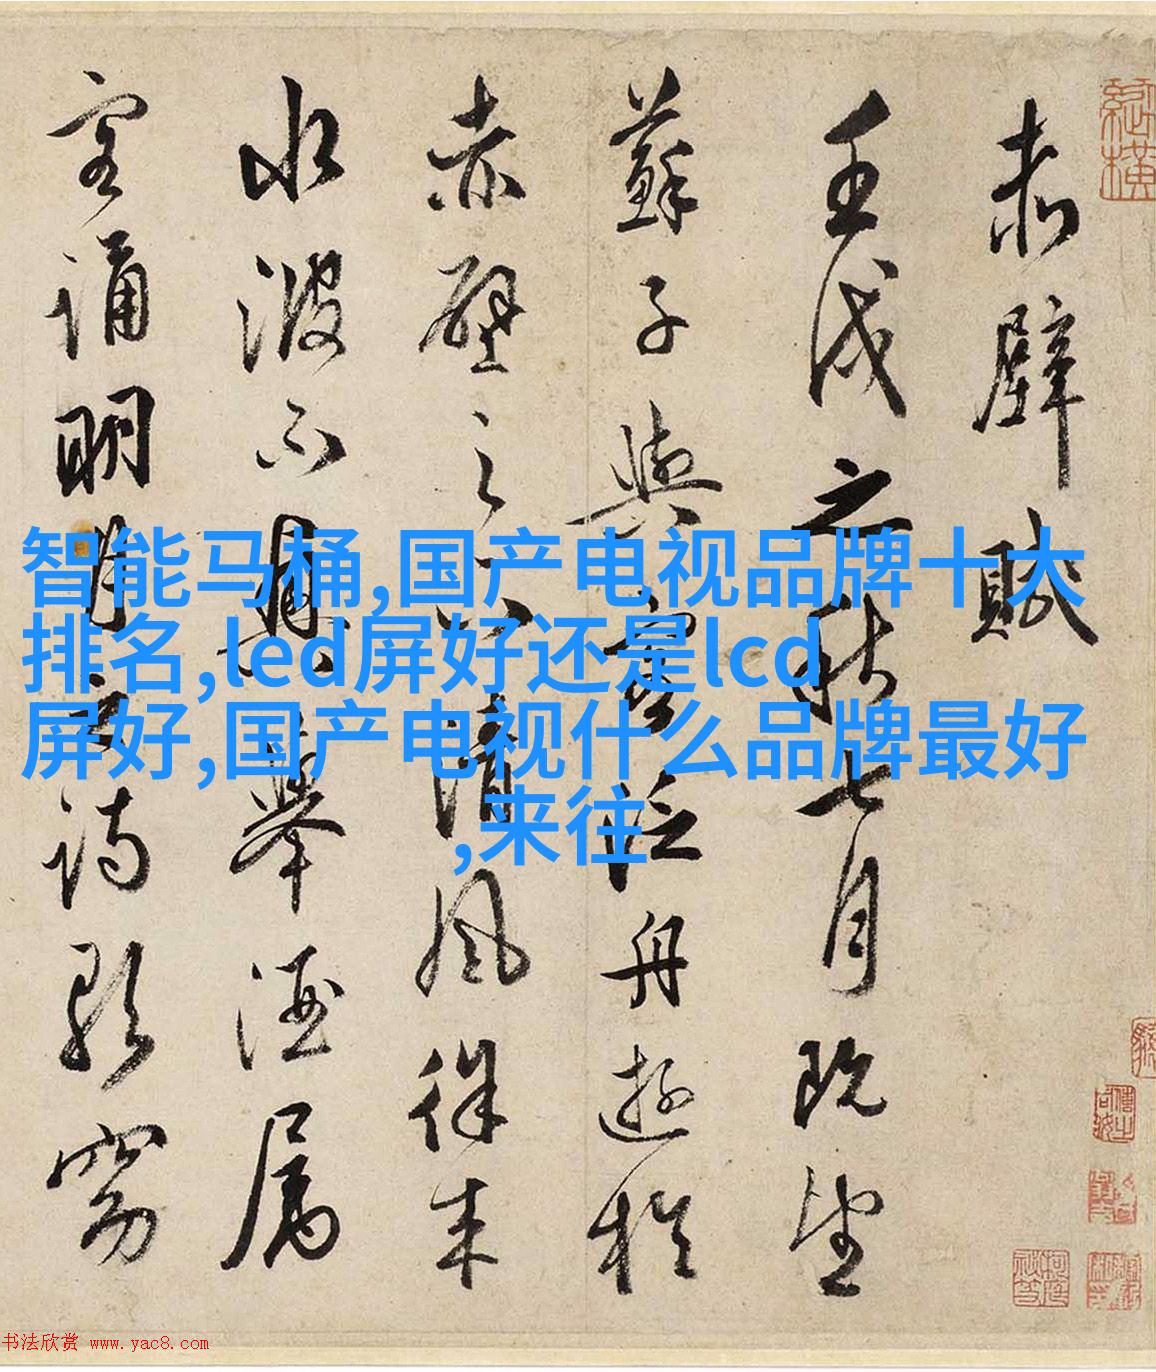 赤壁賦
壬戌之秋七月既望
蘇子與客泛舟遊於
赤壁之下清風徐来
水波不興舉酒屬
客誦明月之詩歌窈
智能马桶,国产电视品牌十大
排名,led屏好还是lcd
屏好,国产电视什么品牌最好
,来往
书法欣赏 www.yac8.com